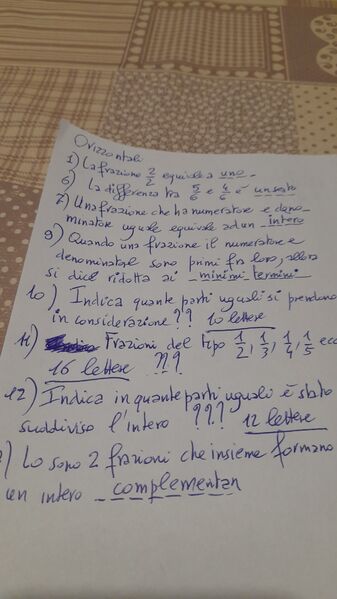 Orizzontali
1) La frazione 2/2 equivale a uno.
6) la differenza tra 5/6 e 4/6 è un sesto
7) Una frazione che ha numeratore e deno-
minatore uguale equivale ad un intero
9) Quando una frazione il numeratore e
denominatore sono primi fra loro, allora
si dice ridotta ai minimi termini
10) Indica quante parti uguali si prendono
in considerazione?? 10 lettere
11) Frazioni del tipo 1/2, 1/3, 1/4, 1/5 ecc
16 lettere ???
12) Indica in quante parti uguali è stato
suddiviso l'intero ??? 12 lettere
) Lo sono 2 frazioni che insieme formano
un intero complementari